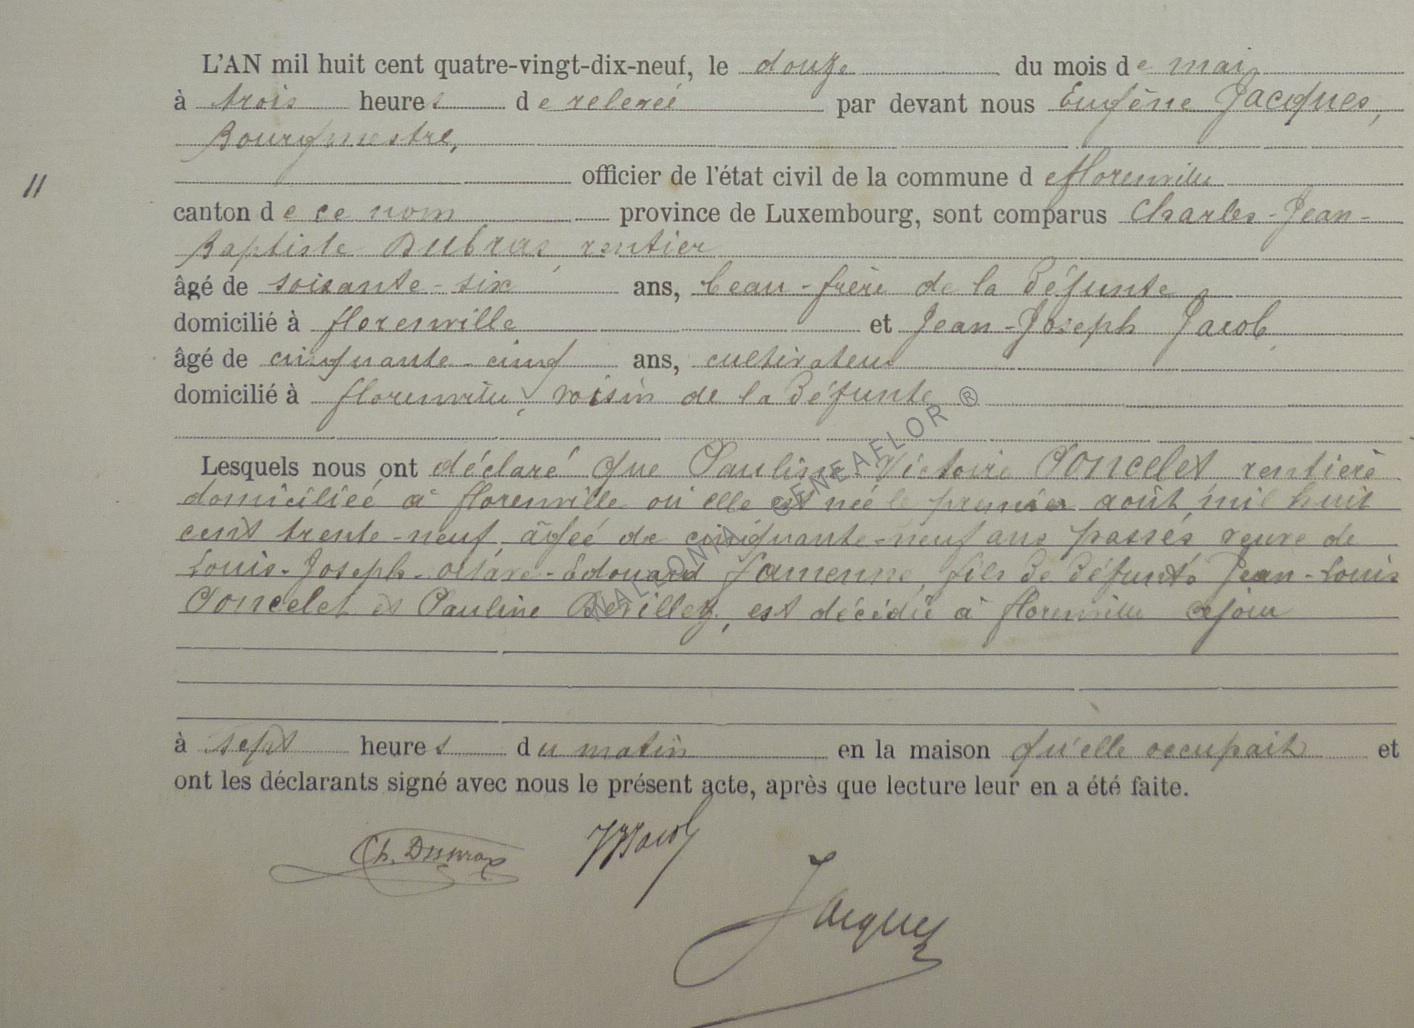 L'AN mil huit cent quatre-vingt-dix-neuf, le douze du mois de mai
à trois heures de relevée par devant nous Eugène Jacques,
Bourgmestre,
11 officier de l'état civil de la commune de florenville
canton de ce nom province de Luxembourg, sont comparus Charles-Jean-
Baptiste Dubras, rentier
âgé de soixante-six ans, beau-frère de la défunte
domicilié à florenville et Jean-Joseph Jacob,
âgé de cinquante-cinq ans, cultivateur
domicilié à florenville, voisin de la défunte
Lesquels nous ont déclaré que Pauline Victoire Poncelet rentière
domiciliée à florenville où elle est née le premier août mil huit
cent trente-neuf âgée de cinquante-neuf ans passés veuve de
Louis-Joseph-Octave-Edouard Famenne, fils de défunts Jean-Louis
Poncelet et Pauline est décédée à florenville ce jour
à sept heures du matin en la maison qu'elle occupait et
ont les déclarants signé avec nous le présent acte, après que lecture leur en a été faite.
Ch. Dubras JJJacob
Jacques
WALLONIA GENEAFLOR ®